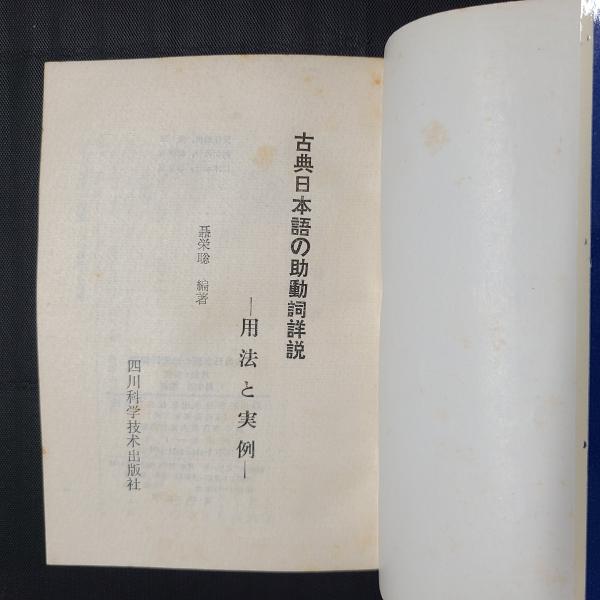 古典日本語の助動詞詳説
―用法と実例―
聶栄聡 編著
四川科学技术出版社